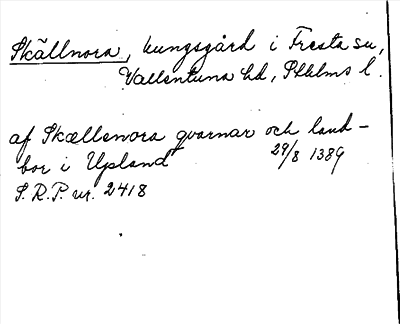 Skällnora, kungsgård i Fresta sn,
Vallentuna hd, Sthlms l.
af Skællenora qvarnar och land-
bor i Upland 29/8 1389
S.R.P. nr. 2418